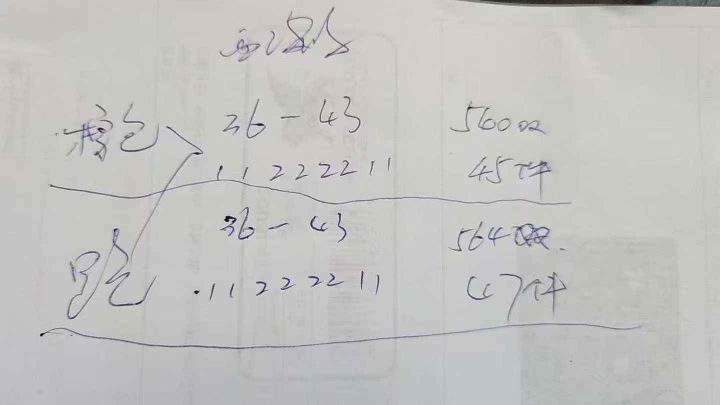 36-43 560双
棕色 11222211 45件
36-43 564双.
11222211 47件